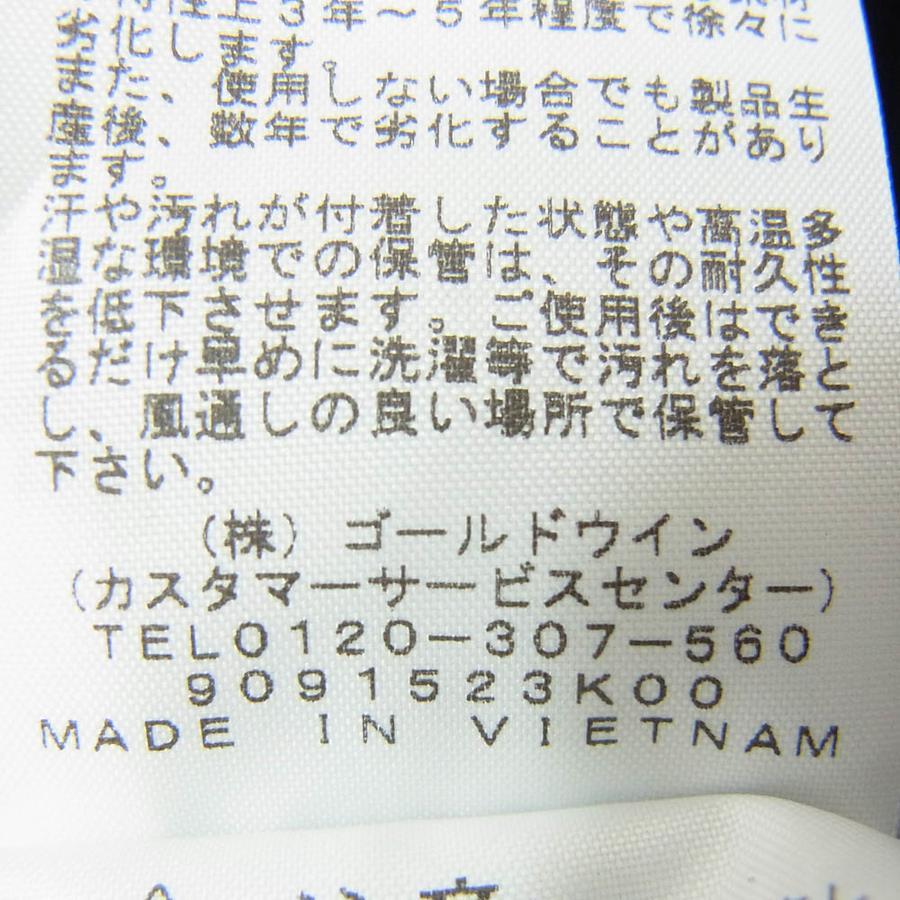 3年～5年程度で徐々に
劣化します。
また、使用しない場合でも製品生
産後、数年で劣化することがあり
ます。
汗や汚れが付着した状態や高温多
湿な環境での保管は、その耐久性
を低下させます。ご使用後はでき
るだけ早めに洗濯等で汚れを落と
し、風通しの良い場所で保管して
下さい。
(株) ゴールドウイン
(カスタマーサービスセンター)
TEL0120-307-560
9091523K00
MADE IN VIETNAM